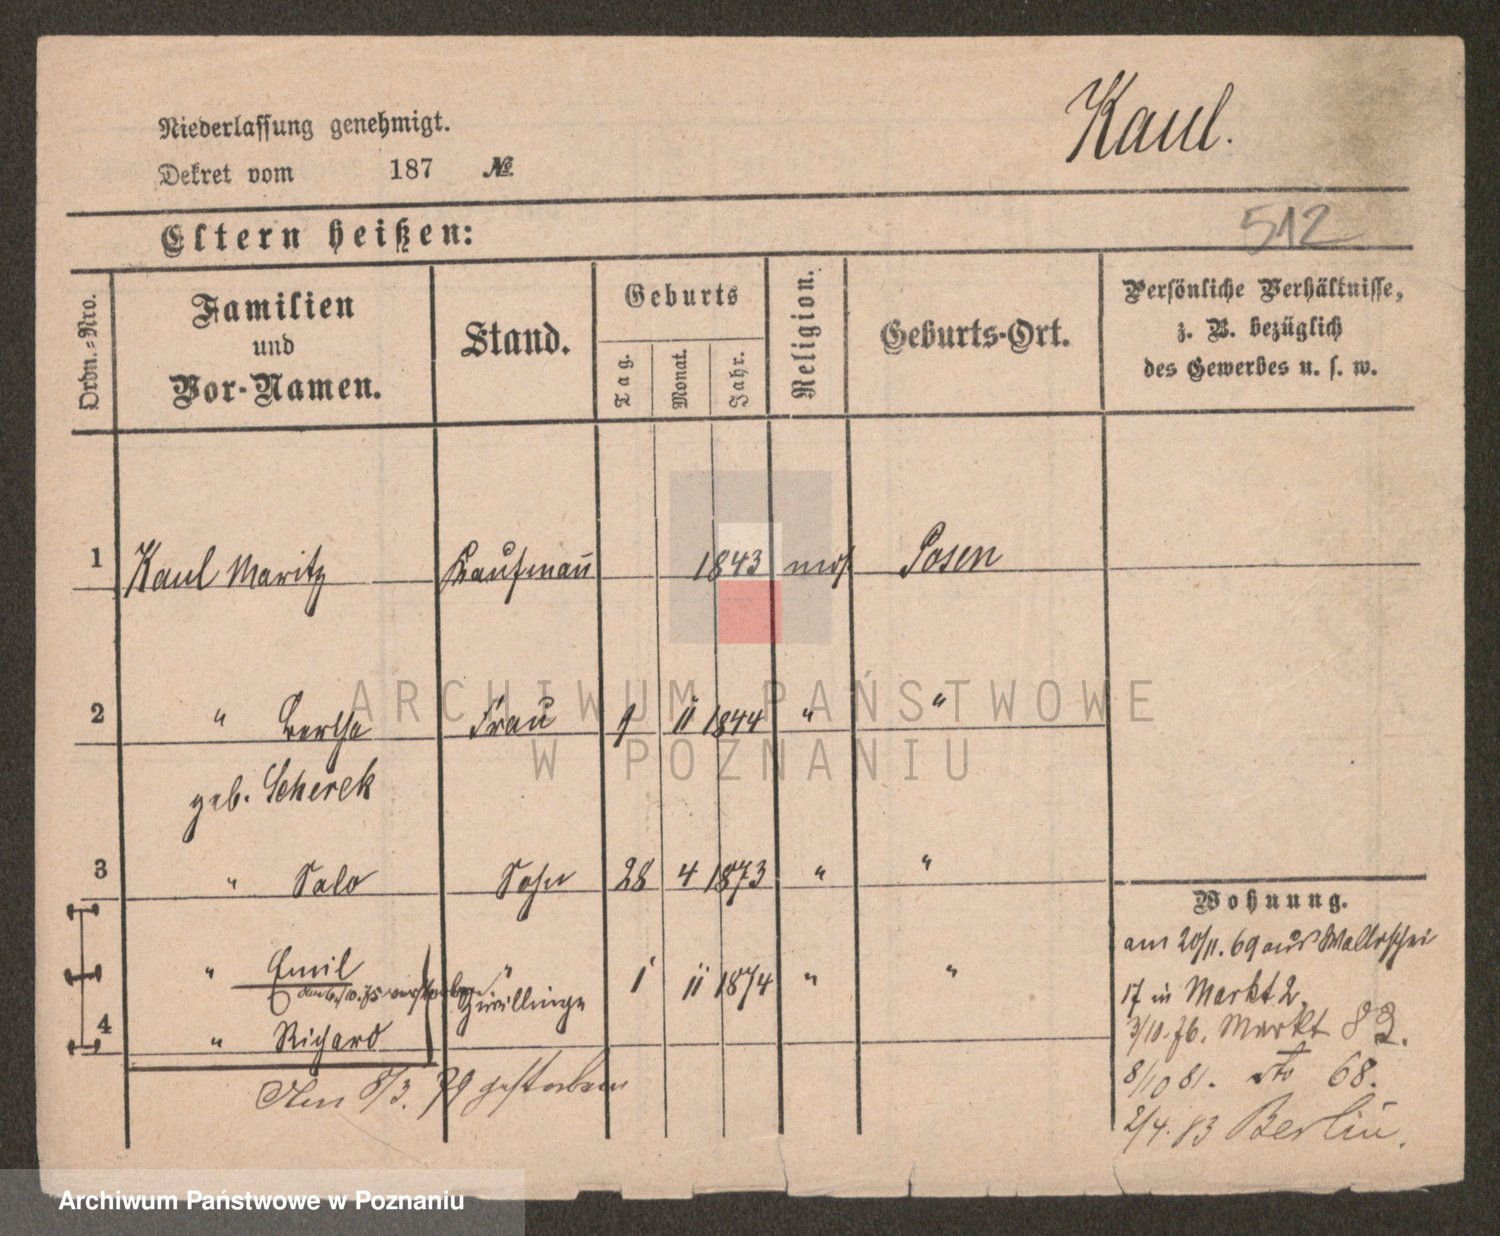 Kaul.
Niederlassung genehmigt.
Dekret vom 187 №
512
Eltern heißen:
Ordn.-Nro.
Familien und Vor-Namen.
Stand.
Geburts
Tag.
Monat.
Jahr.
Religion.
Geburts-Ort.
Persönliche Verhältnisse,
z. B. bezüglich
des Gewerbes u. s. w.
1 Kaul Moritz Kaufmann 1843 mos Posen
2 " Bertha Frau 9 11 1844 " "
geb. Scherek
3 " Salo Sohn 28 4 1873 " "
" Emil " 1 11 1874 " "
verstorben Zwillinge
4 " Richard
Den 8/3. 79 gestorben
Wohnung.
am 20/11. 69 aus Wallischei
17 in Markt 2.
3/10. 76. Markt 82.
8/10 81. dto 68.
2/4. 83 Berlin.
ARCHIWUM PAŃSTWOWE
W POZNANIU
Archiwum Państwowe w Poznaniu